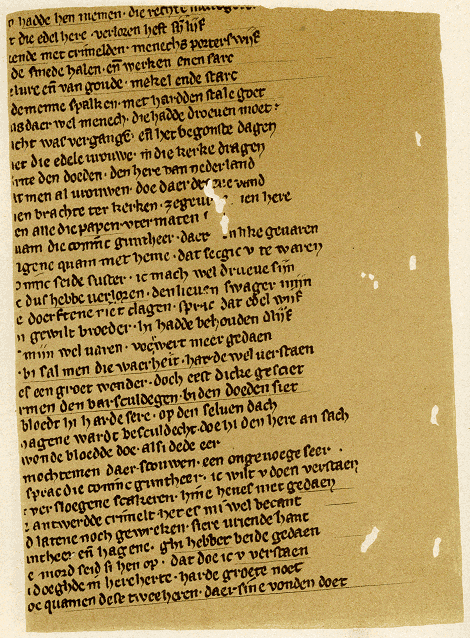 hadde hen niemen · die rechte
t die edel here · verlozen heft sijn lijf
ende met crimelden · menechs porters wijf
de smede halen · en̄ werken enen sarc
elure en̄ van goude · mekel ende starc
demenne spalken · met hardden stale goet
as daer wel menech · die hadde droeuen moet ·
icht was vergange · en̄ het begonste dagen
iet die edele vrouwe · in die kerke dragen
rnte den doeden · den here van nederland
t men al vrouwen · doe daer
en brachte ter kerken · ien here
en alle die papen · vter maten
uam die coninc guntheer · daer geuaren
agene quam met heme · dat seggic v te waren
seide suster · ic mach wel drueue sijn
c dus hebbe verlozen · den lieuen swager mijn
e doerftene niet clagen · sprac dat edel wijf
n gewilt broeder · hi hadde behouden dlijf
mijn wel varen · meer gedaen
bi sal men die waerheit · harde wel verstaen
es een groet wonder · doch eest dicke gesciet
rmen den barsculdegen · bi den doeden siet
bloedt hi harde sere · op den seluen dach
hagene wardt besculdecht · doe hi den here an sach
wonde bloedde doe · alsi dede eer
mochtemen daer scouwen · een ongevoege seer ·
sprac die coninc guntheer · ic wilt v doen verstaen
versloegene scakeren · hine heues niet gedaen
antwerdde crimelt · het es mi wel becant
d latene noch gewreken · siere vriende hant
ntheer en̄ hagene · ghi hebbet beide gedaen
e mord seid si hen op · dat doe ic v verstaen
doeghde in heir herte · harde groete noet
oe quamen dese twee heren · daer sine vonden doet